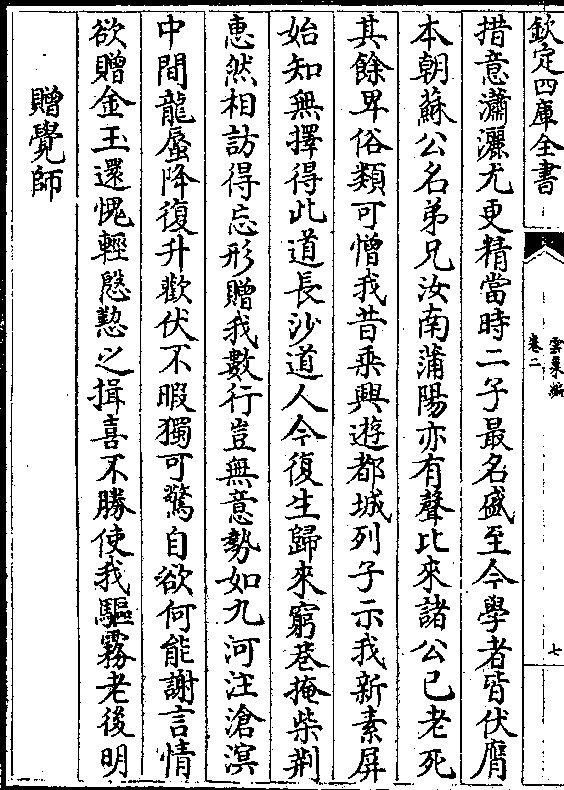 欽定四庫全書
雲巢編
卷二
七
措意瀟灑尤更精當時二子最名盛至今學者皆伏膺
本朝蘇公名弟兄汝南蒲陽亦有聲比來諸公已老死
其餘卑俗類可憎我昔乘興遊都城列子示我新素屏
始知無擇得此道長沙道人今復生歸來窮巷掩柴荆
惠然相訪得忘形贈我數行豈無意勢如九河注滄溟
中間龍蜃降復升歡伏不暇獨可驚自欲何能謝言情
欲贈金玉還愧輕慇懃之揖喜不勝使我驅霧老後明
贈覺師